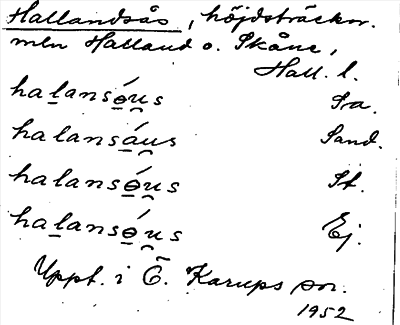 Hallandsås, höjdsträckn.
mln Halland o. Skåne,
Hall. l.
ha̱lansǿ̱u̯s Sra.
halansá̱u̯s Sand.
halansǿ̱u̯s St.
ha̱lansǿ̱u̯s Ej.
Uppt. i Ö. Karups sn.
1952